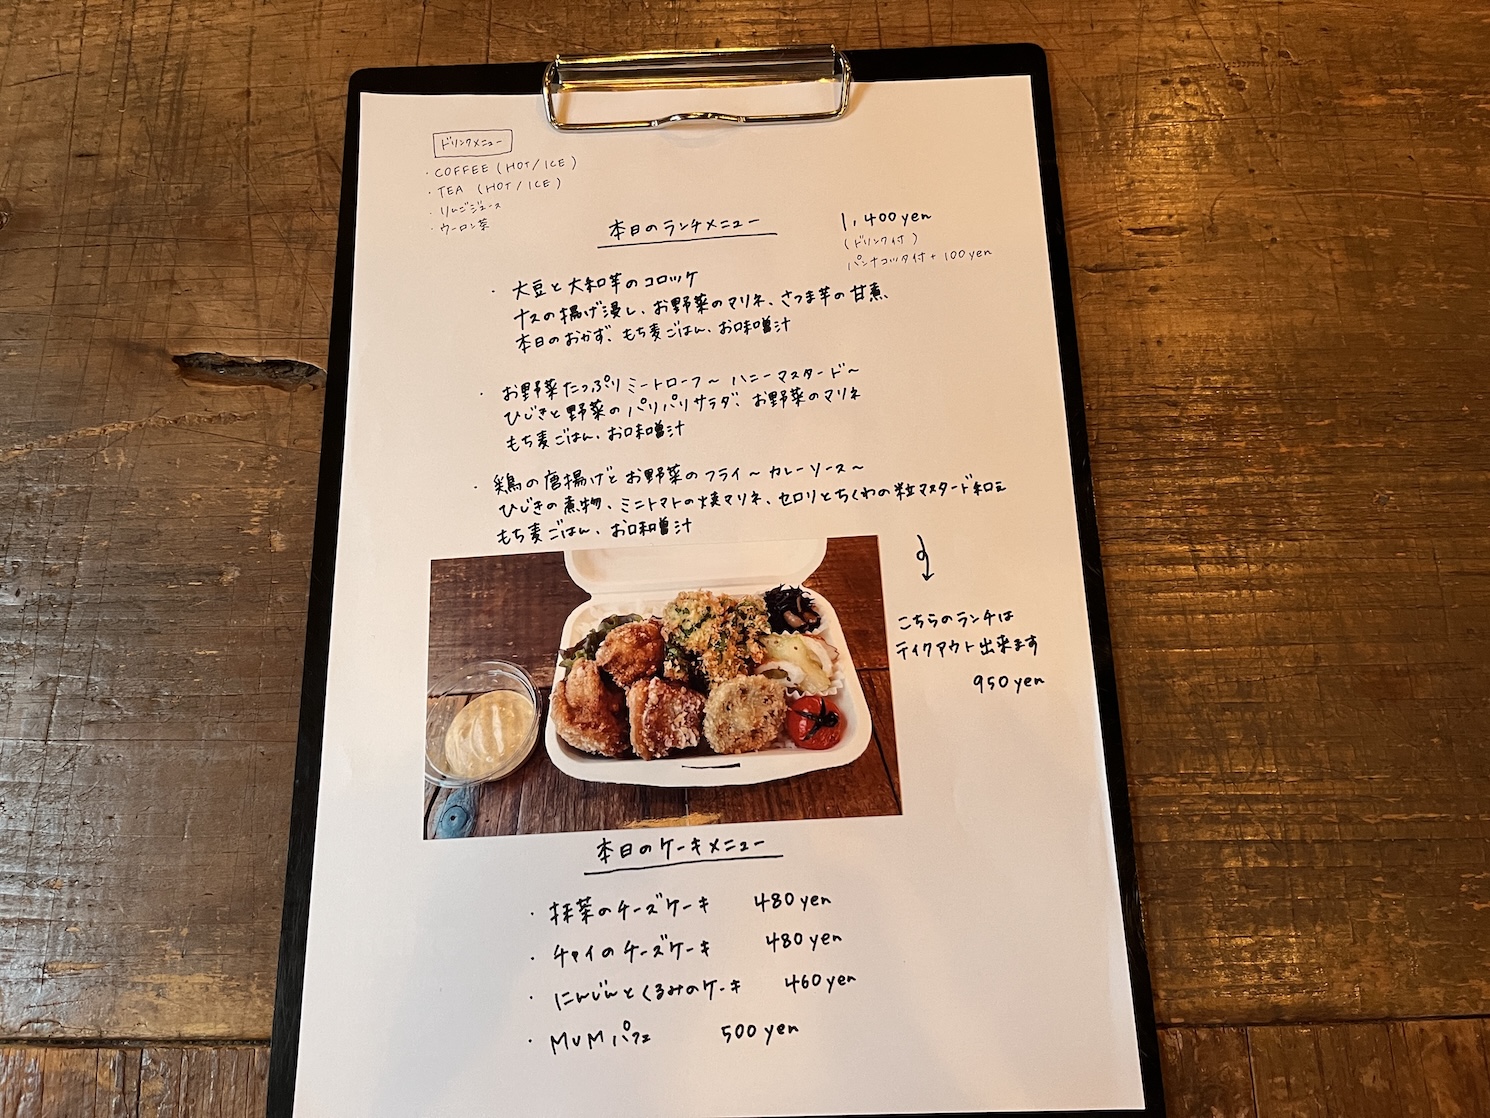 ドリンクメニュー
・COFFEE (HOT/ICE)
・TEA (HOT/ICE)
・りんごジュース
・ウーロン茶
本日のランチメニュー
1,400yen
(ドリンク付)
パンナコッタ付+100yen
・大豆と大和芋のコロッケ
ナスの揚げ浸し、お野菜のマリネ、さつま芋の甘煮、
本日のおかず、もち麦ごはん、お味噌汁
・お野菜たっぷりミートローフ〜ハニーマスタード〜
ひじきと野菜のパリパリサラダ、お野菜のマリネ
もち麦ごはん、お味噌汁
・鶏の唐揚げとお野菜のフライ〜カレーソース〜
ひじきの煮物、ミニトマトの焼マリネ、セロリとちくわの粒マスタード和え
もち麦ごはん、お味噌汁
こちらのランチは
テイクアウト出来ます
950yen
本日のケーキメニュー
・抹茶のチーズケーキ 480yen
・チャイのチーズケーキ 480yen
・にんじんとくるみのケーキ 460yen
・MUMパフェ 500yen